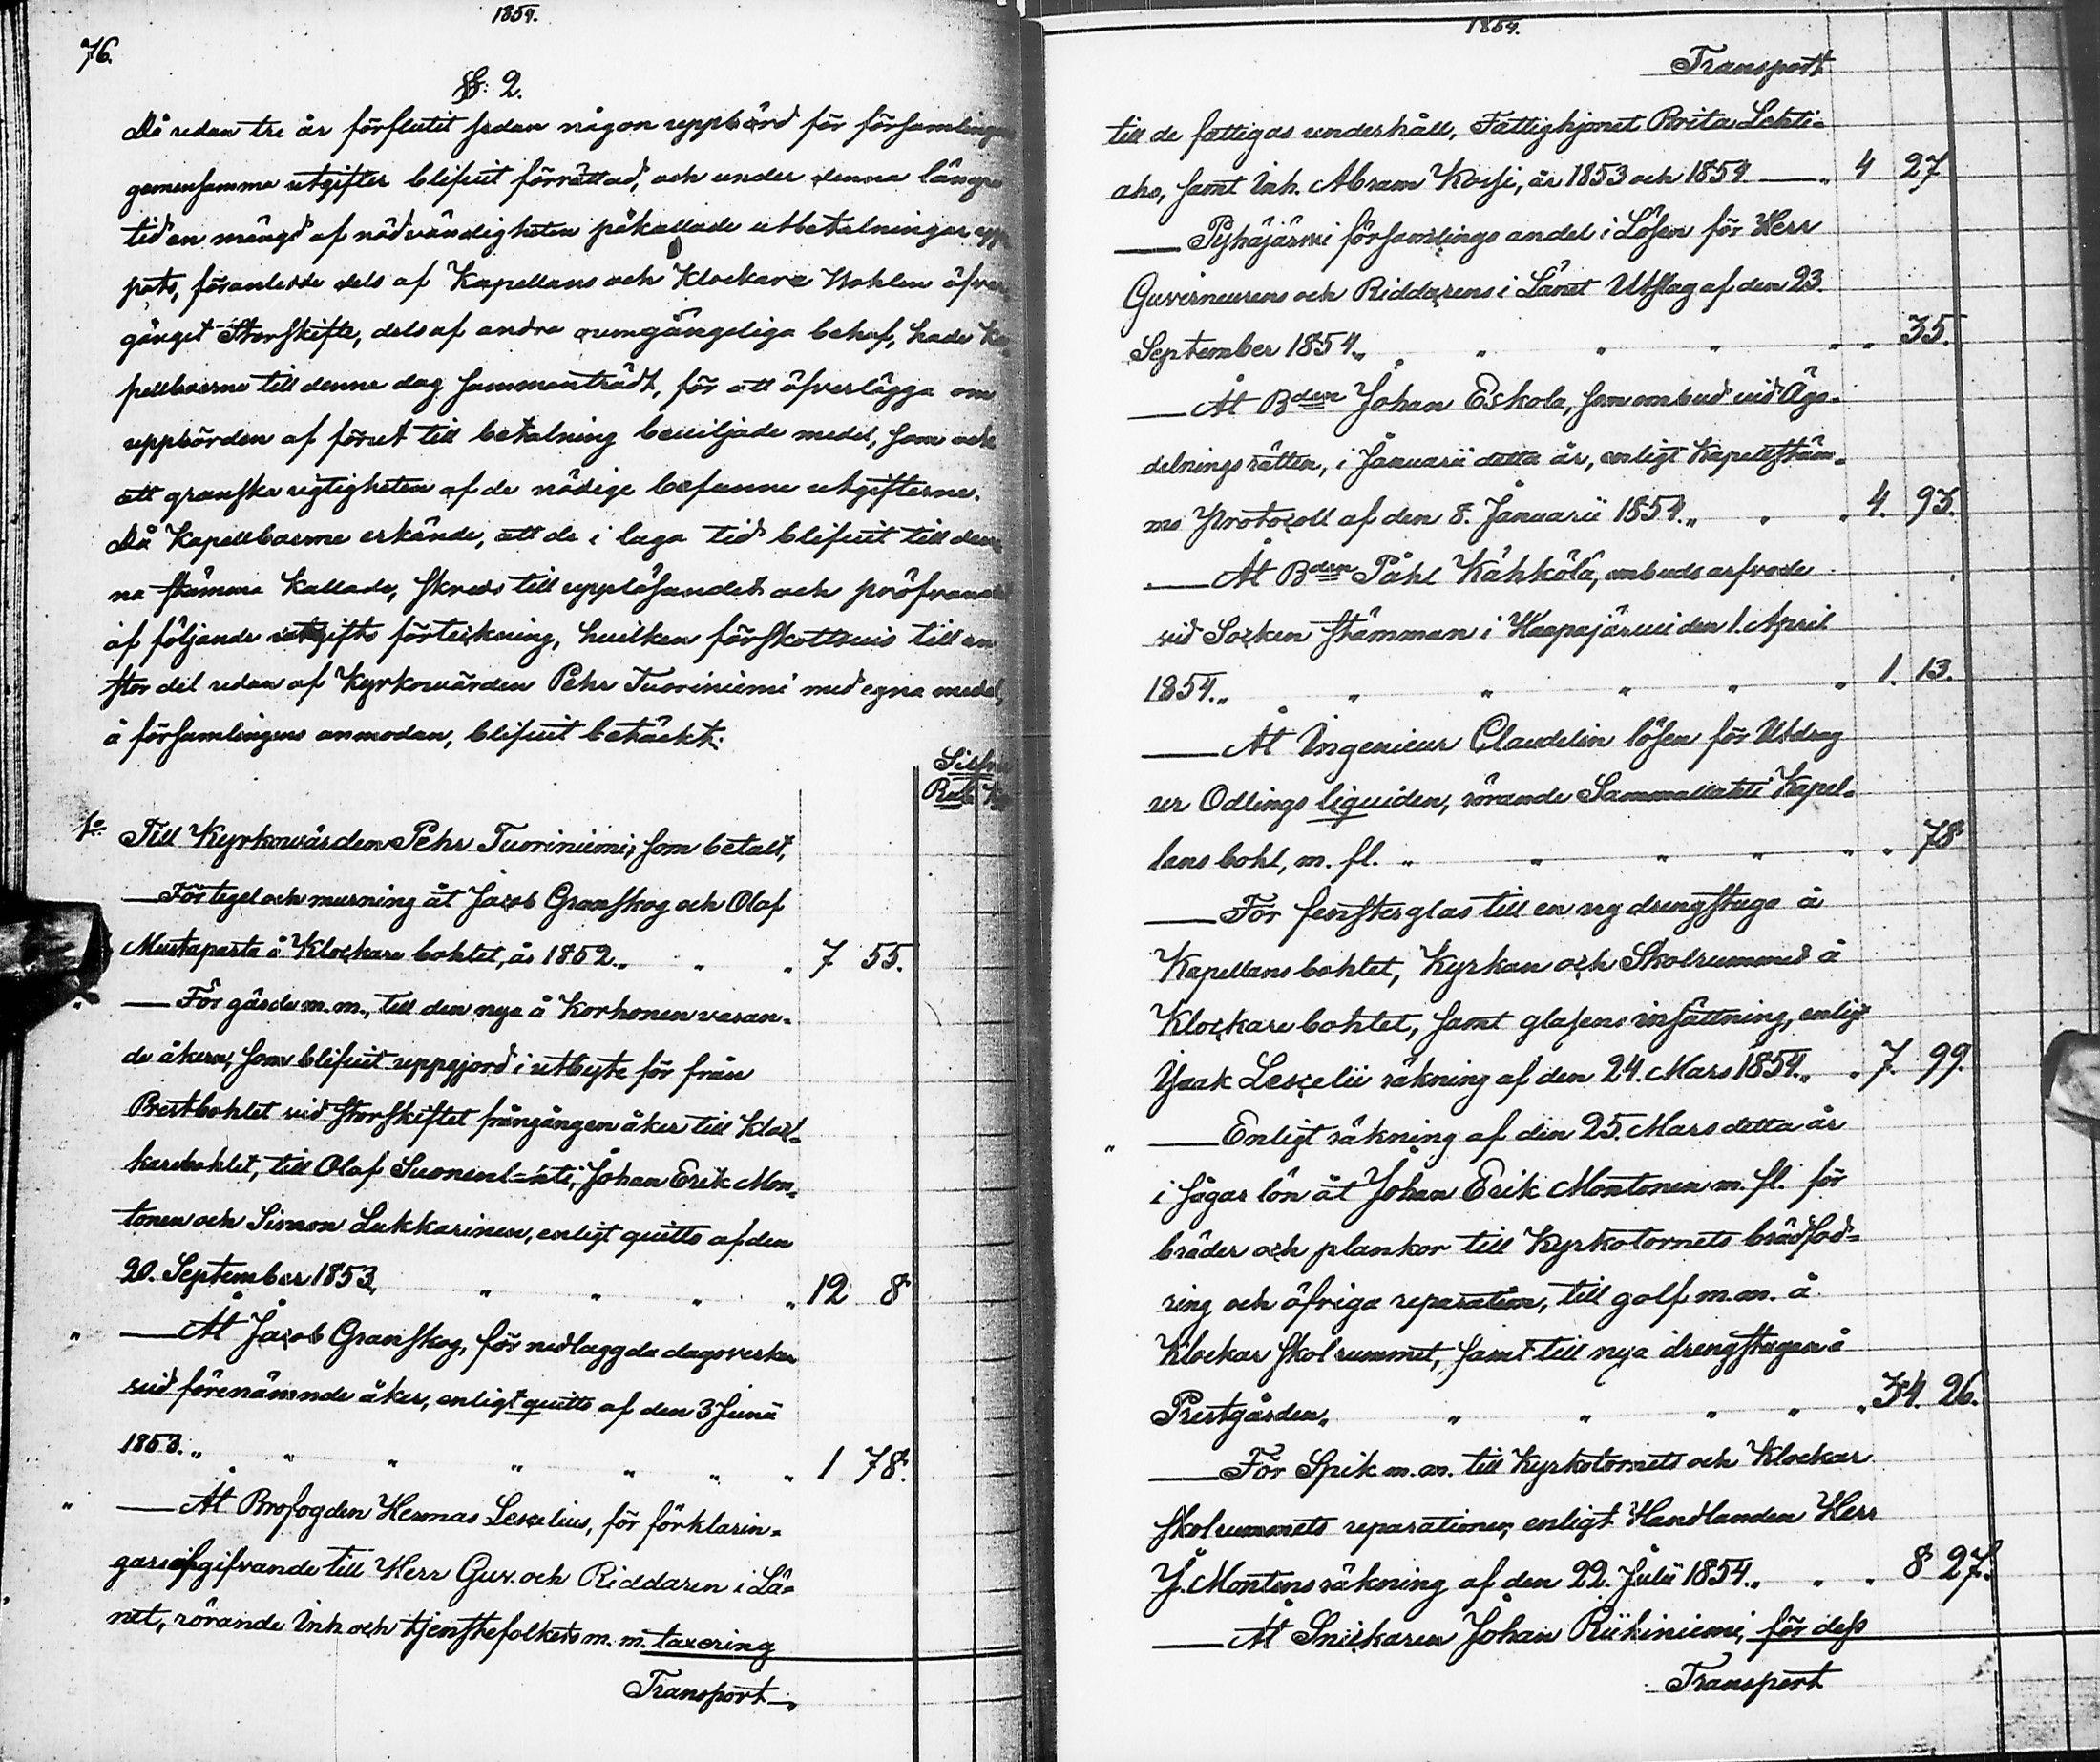 1854.
76.
§: 2.
Då redan tre år förflutit sedan någon uppbörd för församlingens
gemensamma utgifter blifvit förrättad, och under denna långa
tid en mängd af nödvändigheten påkallade utbetalningar upp
pats, föranledde dels af Kapellans och Klockare Bohlen öfver
gånget Storskifte, dels af andra oumgängeliga behof, hade Ka
pellboerne till denna dag sammanträdt, för att öfverlägga om
uppbörden af förut till betalning beviljade medel, som och
att granska rigtigheten af de nödige befunne utgifterne.
Då Kapellboerne erkände, att de i laga tid blifvit till den
na stämma kallade, skreds till uppläsandet och pröfvandet
af följande utgifts förteckning, hvilken förskottsvis till en
stor del redan af Kyrkovärden Pehr Tuoriniemi med egna medel,
å församlingens anmodan, blifvit betäckt:
Silfver
Rub. Kop
1o Till Kyrkovärden Pehr Tuoriniemi, som betalt,
— För tegel och murning åt Jacob Granskog och Olof
Mustaparta å Klockare bohlet, år 1852. „ „ „ 7 55.
„ — För gärde m.m., till den nya å Korhonen varan-
de åkern, som blifvit uppgjord i utbyte för från
Prestbohlet vid storskiftet frångången åker till Kloc-
karebohlet, till Olof Suonenlahti, Johan Erik Mon-
tonen och Simon Lukkarinen, enligt quitto af den
20. September 1853, „ „ „ „ 12 8
„ — Åt Jacob Granskog, för nedlaggda dagsverken
vid förenämnde åker, enligt quitto af den 3 Junii
1853. „ „ „ „ „ „ „ 1 78.
„ — Åt Brofogden Hermas Lescelius, för förklarin-
gars afgifvande till Herr Guv. och Riddaren i Lä-
net, rörande Inh och tjenstefolkets m.m. taxering
Transport „
1854.
Transport
till de fattigas underhåll, Fattighjonet Brita Lehti-
aho, samt Inh. Abram Koisi, år 1853 och 1854 — „ 4 27
— Pyhäjärvi församlings andel i Lösen för Herr
Guverneurens och Riddarens i Länet Utslag af den 23.
September 1854. „ „ „ „ „ „ 35.
— Åt Bden Johan Eskola, som ombud vid Ägo-
delningsrätten, i Januarii detta år, enligt Kapellstäm-
mo Protocoll af den 8. Januarii 1854. „ „ „ 4. 93.
— Åt Bden Påhl Kähkölä, ombuds arfvode
vid Socken stämman i Haapajärvi den 1. April
1854. „ „ „ „ „ „ 1. 13.
— Åt Ingenieur Claudelin lösen för Utdrag
ur Odlings liquiden, rörande Sammallahti Kapel-
lans bohl, m. fl. „ „ „ „ „ „ 78
— För fensterglas till en ny drengstuga å
Kapellans bohlet, Kyrkan och Skolrummed å
Klockare bohlet, samt glasens insättning, enligt
Isaak Lescelii räkning af den 24. Mars 1854. „ „ 7. 99.
„ — Enligt räkning af den 25. Mars detta år
i sågar lön åt Johan Erik Montonen m. fl. för
bräder och plankor till Kyrkotornets brädfod-
ring och öfriga reparation, till golf m.m. å
Klockar skolrummet, samt till nya drengstugan å
Prestgården, „ „ „ „ „ 34. 26.
— För Spik m.m. till Kyrkotornets och Klockar
skolrummets reparationer, enligt Handlanden Herr
J. Montens räkning af den 22. Julii 1854. „ „ „ 8 27.
— Åt Snickaren Johan Riikiniemi, för dess
Transport